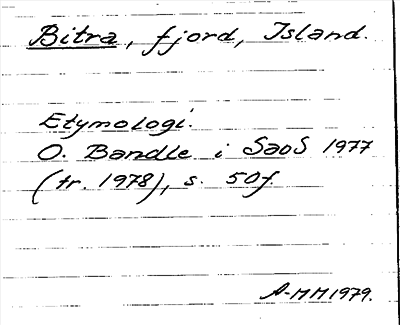 Bitra, fjord, Island.
Etymologi.
O. Bandle i SaoS 1977
(tr. 1978), s. 50f.
A-MM 1979.